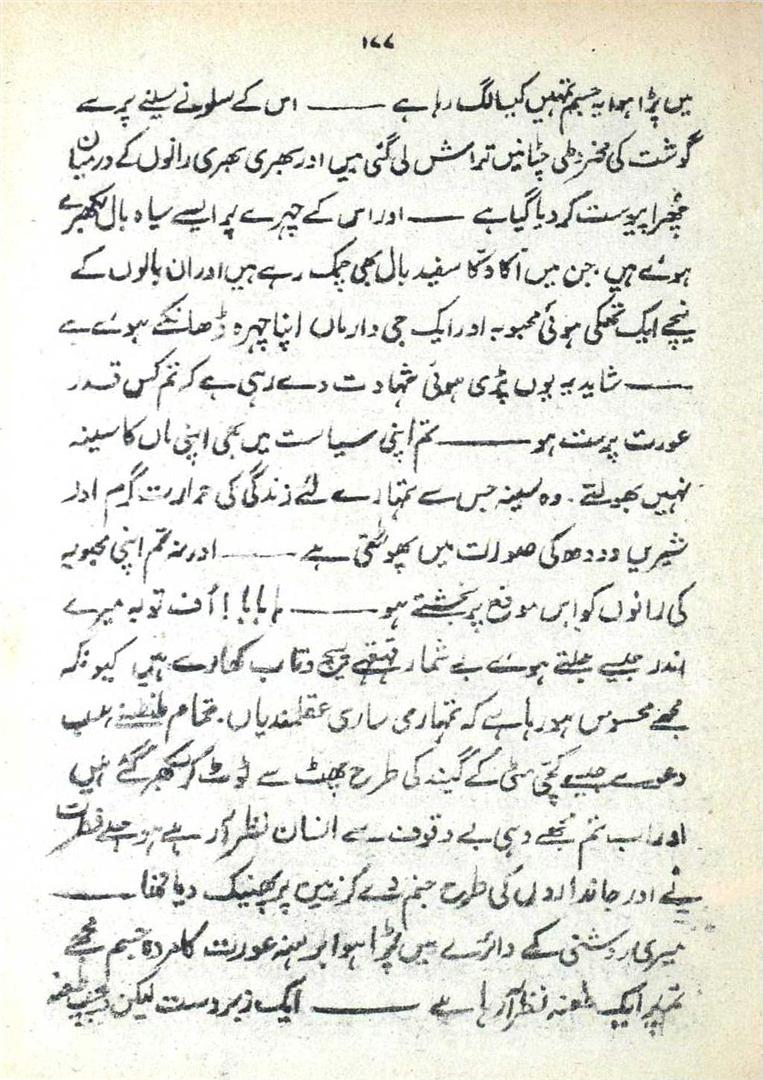 ۱۷۷
میں پڑا ہوا یہ جسم تمہیں کیسا لگ رہا ہے ——— اس کے سلونے سینے پر سے
گوشت کی مخروطی چٹانیں تراش لی گئی ہیں اور بھری بھری رانوں کے درمیان
چھرا پیوست کر دیا گیا ہے —— اور اس کے چہرے پر ایسے سیاہ بال بکھرے
ہوئے ہیں، جن میں اکا دکا سفید بال بھی چمک رہے ہیں اور ان بالوں کے
نیچے ایک تھکی ہوئی محبوبہ اور ایک جی دار ماں اپنا چہرہ ڈھانکے ہوئے ہے
—— شاید یہ یوں پڑی ہوئی شہادت دے رہی ہے کہ تم کس قدر
عورت پرست ہو ——— تم اپنی سیاست میں بھی اپنی ماں کا سینہ
نہیں بھولتے ۔ وہ سینہ جس سے تمہارے لئے زندگی کی حرارت گرم اور
شیریں دودھ کی صورت میں پھوٹتی ہے ——— اور نہ تم اپنی محبوبہ
کی رانوں کو اس موقع پر بخشتے ہو ——— ہاہا!!! اُف توبہ میرے
اندر جیسے جلتے ہوئے بے شمار قہقہے پیچ و تاب کھا رہے ہیں کیونکہ
مجھے محسوس ہو رہا ہے کہ تمہاری ساری عقلمندیاں، تمام طنطنے، سب
دعوے جیسے کچی مٹی کے گیند کی طرح پھٹ سے ٹوٹ کر بکھر گئے ہیں
اور اب تم مجھے وہی بے وقوف سے انسان نظر آ رہے ہو جسے فطرت
نے اور جانداروں کی طرح جنم دے کر زمین پر پھینک دیا تھا ———
میری روشنی کے دائرے میں پڑا ہوا برہنہ عورت کا مردہ جسم مجھے
تم پر ایک طعنہ نظر آ رہا ہے ——— ایک زبردست لیکن